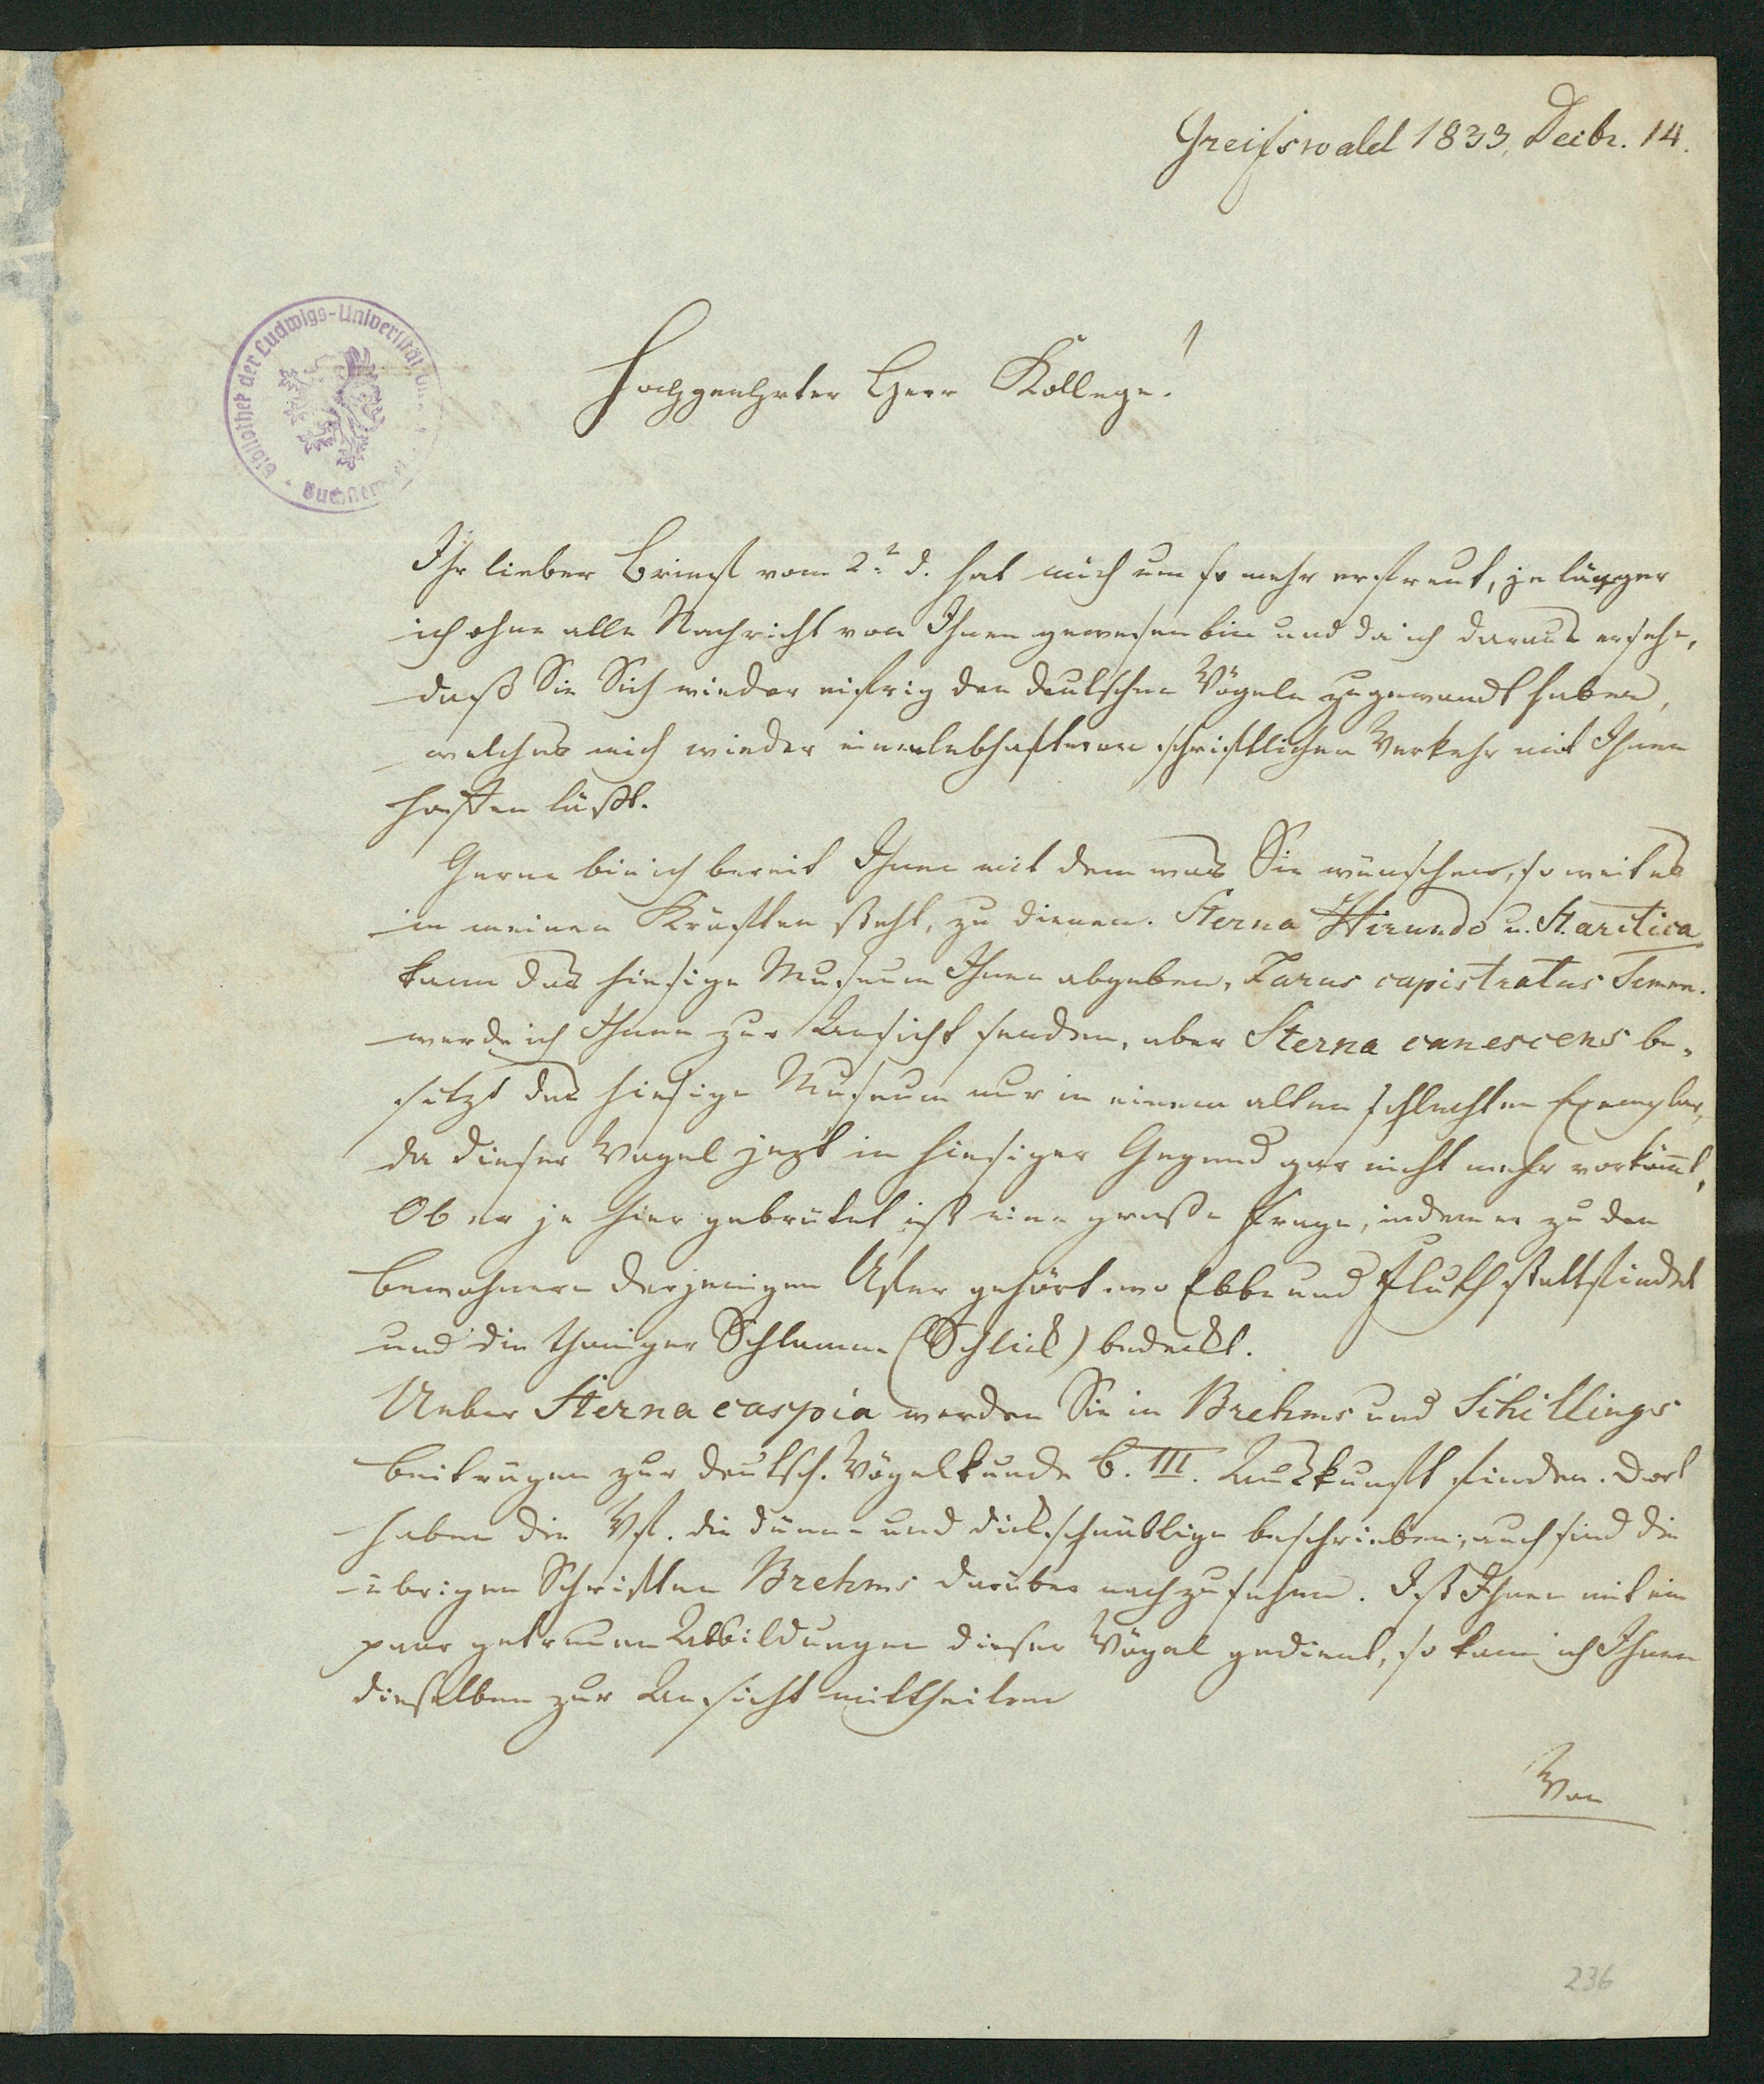 Greifswald 1833, Decbr. 14.
Bibliothek der Ludwigs-Universität
Hochgeehrter Herr Kollege!
Ihr lieber Brief vom 2n d. hat mich um so mehr erfreut, je länger
ich ohne alle Nachricht von Ihnen gewesen bin und da ich daraus ersehe,
daß Sie Sich wieder eifrig den deutschen Vögeln zugewandt haben,
welches mich wieder einen lebhafteren schriftlichen Verkehr mit Ihnen
hoffen läßt.
Gerne bin ich bereit Ihnen mit dem was Sie wünschen, so weit es
in meinen Kräften steht, zu dienen. Sterna Hirundo u. St. arctica
kann das hiesige Museum Ihnen abgeben, Larus capistratus Temm.
werde ich Ihnen zur Ansicht senden, aber Sterna canescens be-
sitzt das hiesige Museum nur in einem alten schlechten Exemplar,
da dieser Vogel jezt in hiesiger Gegend gar nicht mehr vorkömt,
Ob er je hier gebrütet ist eine große Frage, indem er zu den
Bewohnern derjenigen Ufer gehört wo Ebbe und Fluth stattfindet
und die thoniger Schlamm (Schlick) bedeckt.
Ueber Sterna caspia werden Sie in Brehms und Schillings
Beiträgen zur deutsch. Vögelkunde B. III. Auskunft finden. Dort
haben die Vf. die dünn- und dickschnäblige beschrieben; auch sind die
übrigen Schriften Brehms darüber nachzusehen. Ist Ihnen mit ein
paar getreuen Abbildungen dieser Vögel gedient, so kann ich Ihnen
dieselben zur Ansicht mittheilen
Von
236